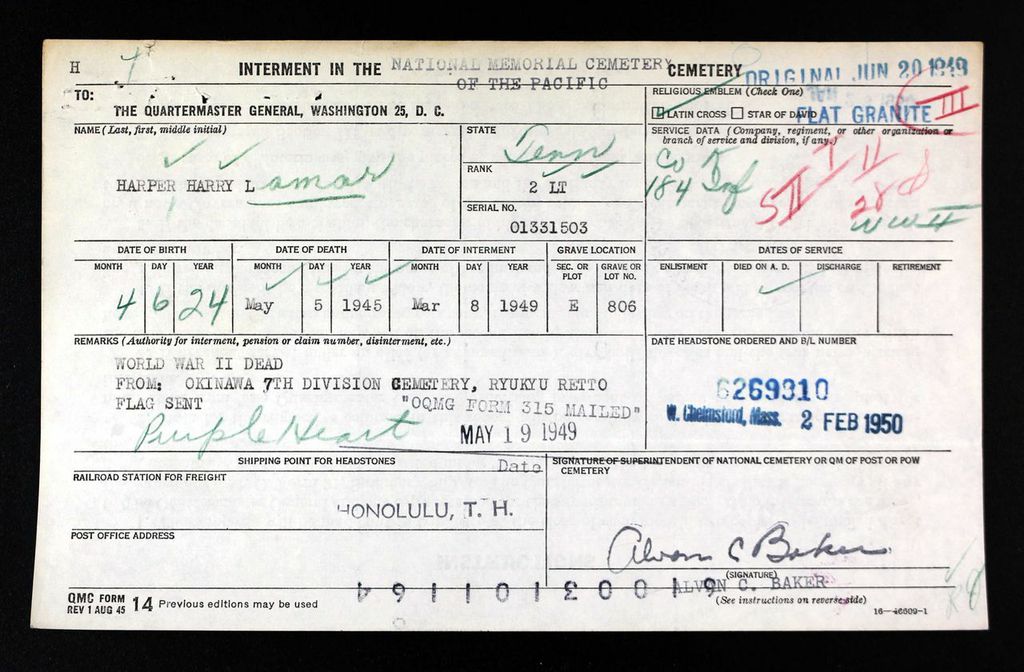 H
INTERMENT IN THE NATIONAL MEMORIAL CEMETERY CEMETERY
OF THE PACIFIC
ORIGINAL JUN 20 1949
TO:
THE QUARTERMASTER GENERAL, WASHINGTON 25, D. C.
RELIGIOUS EMBLEM (Check One)
LATIN CROSS STAR OF DAVID
FLAT GRANITE III
NAME (Last, first, middle initial)
HARPER HARRY Lamar
STATE
Tenn
RANK
2 LT
SERIAL NO.
01331503
SERVICE DATA (Company, regiment, or other organization or branch of service and division, if any.)
Co K
184 Inf
WW II
DATE OF BIRTH DATE OF DEATH DATE OF INTERMENT GRAVE LOCATION DATES OF SERVICE
MONTH DAY YEAR MONTH DAY YEAR MONTH DAY YEAR SEC. OR PLOT GRAVE OR LOT NO. ENLISTMENT DIED ON A. D. DISCHARGE RETIREMENT
4 6 24 May 5 1945 Mar 8 1949 E 806
REMARKS (Authority for interment, pension or claim number, disinterment, etc.)
WORLD WAR II DEAD
FROM: OKINAWA 7TH DIVISION CEMETERY, RYUKYU RETTO
FLAG SENT "OQMG FORM 315 MAILED"
Purple Heart MAY 19 1949
DATE HEADSTONE ORDERED AND B/L NUMBER
6269310
W. Chelmsford, Mass. 2 FEB 1950
SHIPPING POINT FOR HEADSTONES Date
RAILROAD STATION FOR FREIGHT
HONOLULU, T. H.
POST OFFICE ADDRESS
SIGNATURE OF SUPERINTENDENT OF NATIONAL CEMETERY OR QM OF POST OR POW CEMETERY
Alvon C Baker
(SIGNATURE)
ALVON C. BAKER
(See instructions on reverse side)
QMC FORM
REV 1 AUG 45 14 Previous editions may be used
16—46609-1